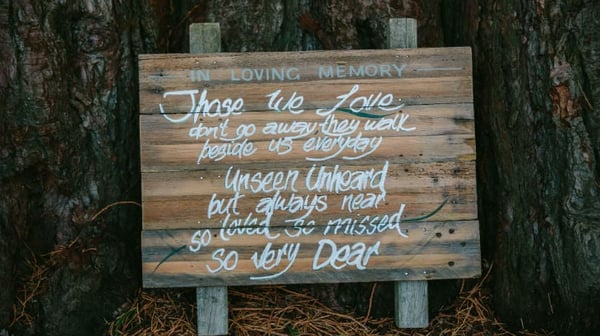 IN LOVING MEMORY
Those We Love
don't go away they walk
beside us everyday
Unseen Unheard
but always near
so loved so missed
so very Dear